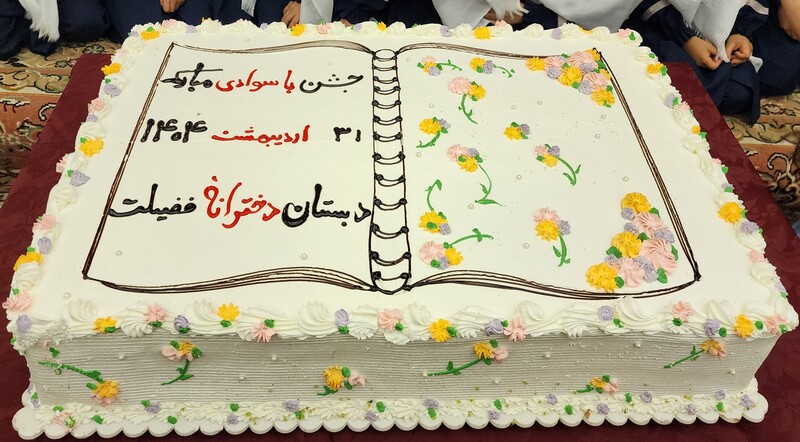 جشن با سوادی مبارک
۳۱ اردیبهشت ۱۴۰۴
دبستان دخترانه فضیلت